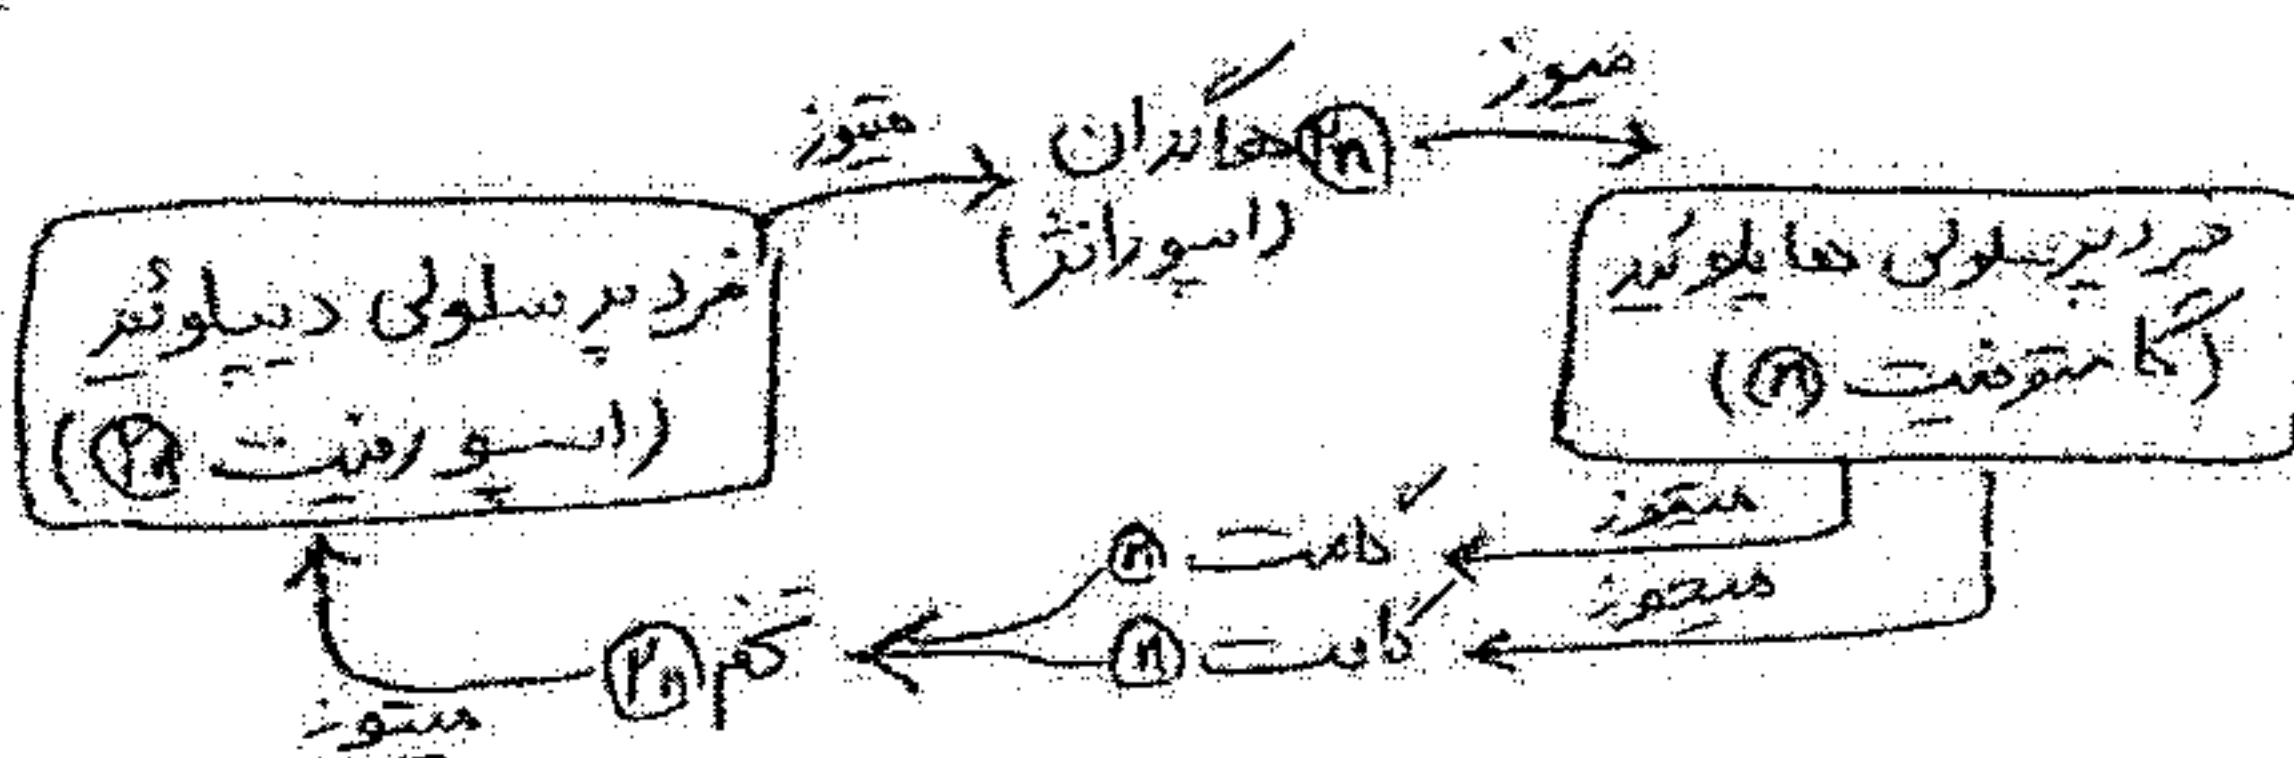 میتوز
هاگدان ۲n
(اسپورانژ)
میوز
فرد پرسلولی دیپلوئید
(اسپورفیت ۲n)
فرد پرسلولی هاپلوئید
(گامتوفیت n)
میتوز
گامت n
میتوز
گامت n
تخم ۲n
میتوز